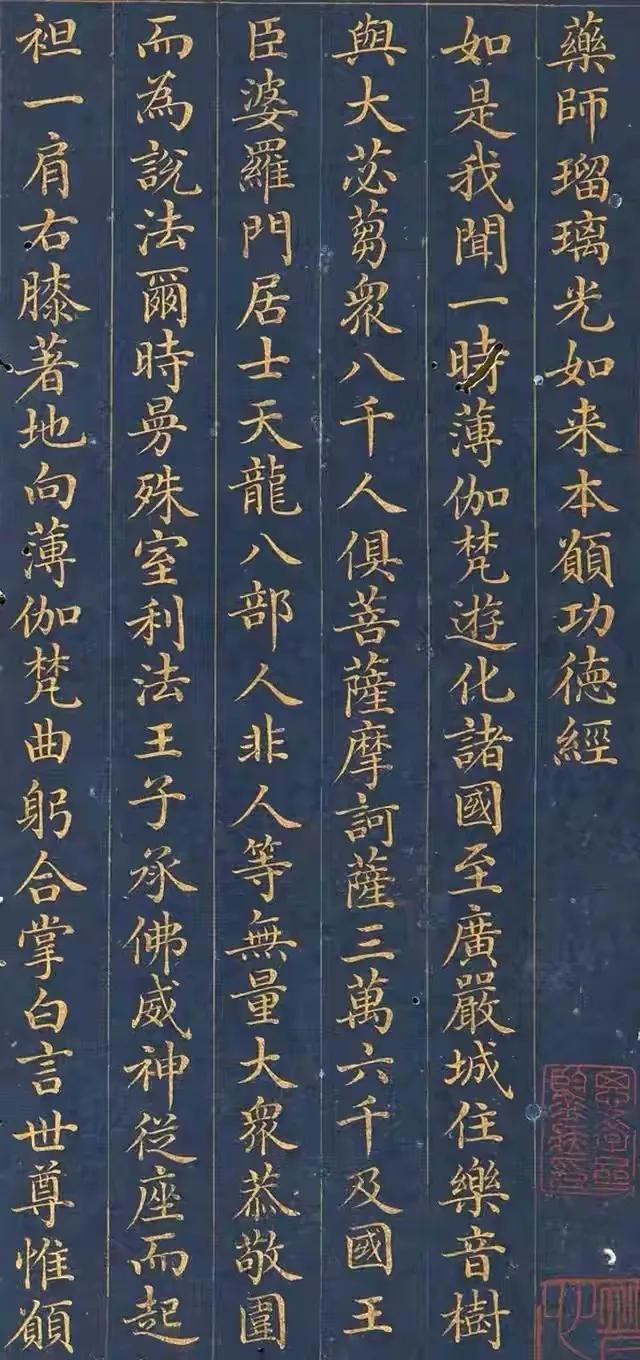 藥師瑠璃光如来本願功徳經
如是我聞一時薄伽梵遊化諸國至廣嚴城住樂音樹
與大苾蒭衆八千人俱菩薩摩訶薩三萬六千及國王
臣婆羅門居士天龍八部人非人等無量大衆恭敬圍
而為說法爾時曼殊室利法王子承佛威神從座而起
袒一肩右膝著地向薄伽梵曲躬合掌白言世尊惟願